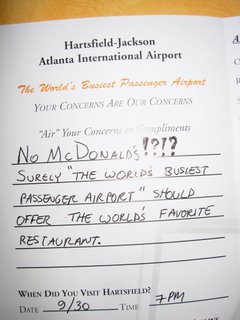 Hartsfield-Jackson
Atlanta International Airport
The World's Busiest Passenger Airport
YOUR CONCERNS ARE OUR CONCERNS
"Air" Your Concerns or Compliments
NO MCDONALD'S !?!?
SURELY "THE WORLD'S BUSIEST
PASSENGER AIRPORT" SHOULD
OFFER THE WORLD'S FAVORITE
RESTAURANT.
WHEN DID YOU VISIT HARTSFIELD?
DATE 9/30 TIME 7PM